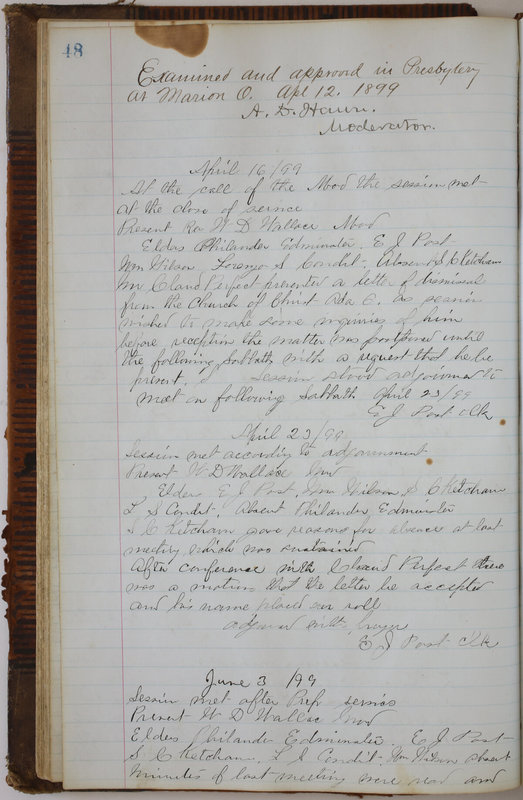 48
Examined and approved in Presbytery
at Marion O. Apl 12. 1899
A. D. Hawn.
Moderator.
April 16/99
At the call of the Mod the session met
at the close of service
Present Rev W D Wallace Mod
Elders Philander Edminster. E J Post
Wm Wilson Lorenzo S Condit. Absent S C Ketcham
Mr Claud Perfect presented a letter of dismissal
from the Church of Christ Ada O. as session
wished to make some inquiries of him
before reception the matter was postponed until
the following Sabbath with a request that he be
present. Session stood adjourned to
meet on following Sabbath April 23/99
E J Post Clk
April 23/99
Session met according to adjournment
Present W D Wallace Mod
Elders E J Post, Wm Wilson S C Ketcham
L S Condit. Absent Philander Edminster
S C Ketcham gave reasons for absence at last
meeting which was sustained
After conference with Claud Perfect there
was a motion that the letter be accepted
and his name placed on roll
adjourned with prayer
E J Post Clk
June 3 /99
Session met after Prep service
Present W D Wallace Mod
Elders Philander Edminster. E J Post
S C Ketcham, L S Condit. Wm Wilson absent
Minutes of last meeting were read and